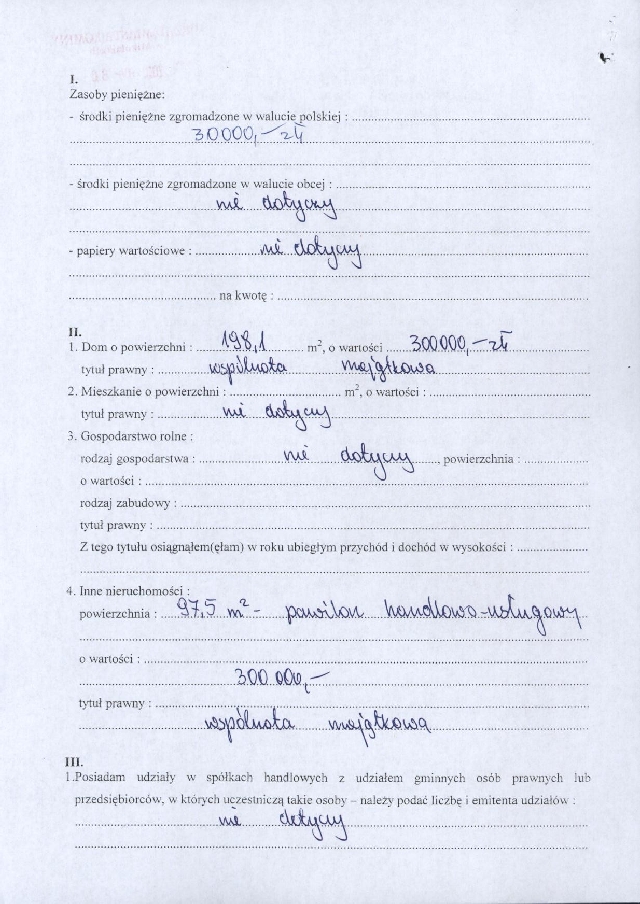 I.
Zasoby pieniężne:
- środki pieniężne zgromadzone w walucie polskiej :
30000,- zł
- środki pieniężne zgromadzone w walucie obcej :
nie dotyczy
- papiery wartościowe : nie dotyczy
na kwotę :
II.
1. Dom o powierzchni : 198,1 m², o wartości 300000,- zł
tytuł prawny : wspólnota majątkowa
2. Mieszkanie o powierzchni : m², o wartości :
tytuł prawny : nie dotyczy
3. Gospodarstwo rolne :
rodzaj gospodarstwa : nie dotyczy , powierzchnia :
o wartości :
rodzaj zabudowy :
tytuł prawny :
Z tego tytułu osiągnąłem(ęłam) w roku ubiegłym przychód i dochód w wysokości :
4. Inne nieruchomości :
powierzchnia : 97,5 m² - pawilon handlowo-usługowy
o wartości :
300 000,-
tytuł prawny :
wspólnota majątkową
III.
1.Posiadam udziały w spółkach handlowych z udziałem gminnych osób prawnych lub
przedsiębiorców, w których uczestniczą takie osoby – należy podać liczbę i emitenta udziałów :
nie dotyczy